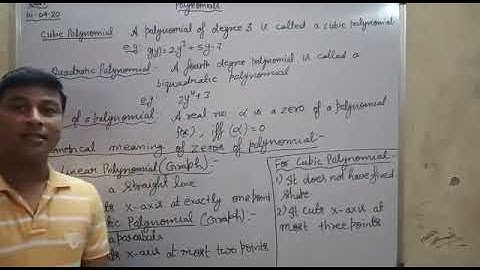 11-04-20
Polynomials
Cubic Polynomial- A polynomial of degree 3 is called a cubic polynomial
e.g:
Quadratic Polynomial:- A fourth degree polynomial is called a
biquadratic polynomial
2y⁴+3
of a polynomial:- A real no. α is a zero of a polynomial
iff (α)=0
metrical meaning of zeros of polynomial:-
Linear Polynomial (Graph):-
a straight line
x-axis at exactly one point
tic Polynomial (Graph):-
a parabola
x-axis at most two points
For Cubic Polynomial-
1) It does not have fixed
shape
2) It cuts x-axis at
most three points